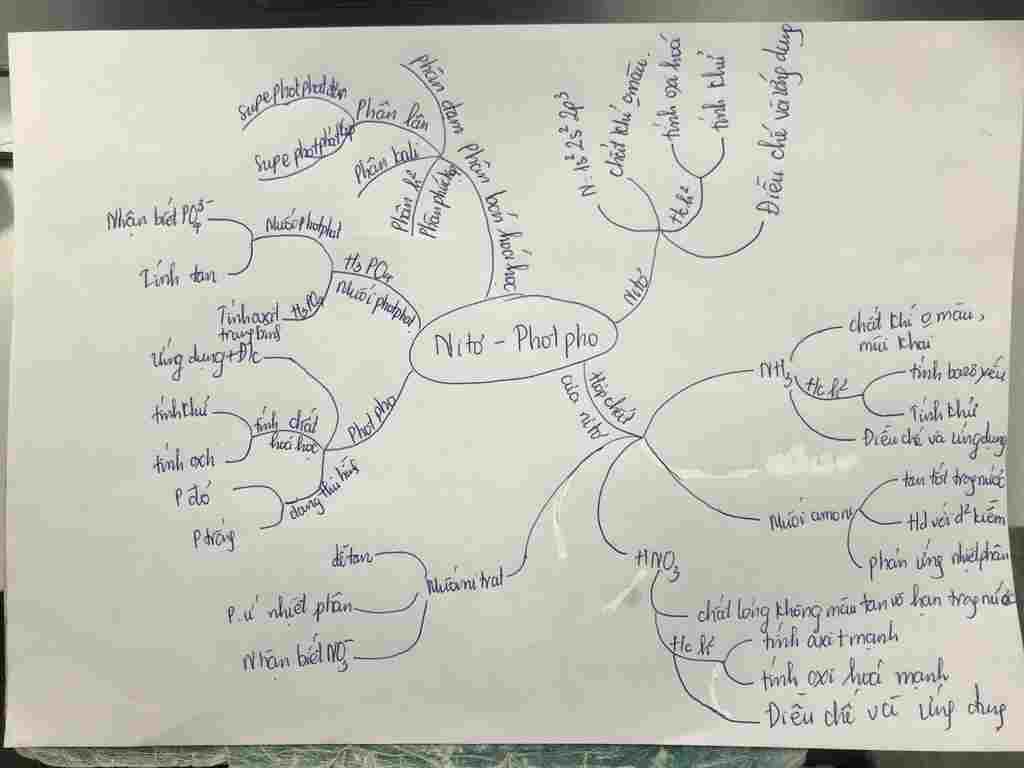 Nitơ - Photpho
Nitơ
N: 1s² 2s² 2p³
chất khí o màu.
Hc h²
tính oxa hoá
tính khử
Điều chế và ứng dụng
Hợp chất
của nitơ
NH₃
chất khí o màu,
mùi khai
Hc h²
tính bazơ yếu
Tính khử
Điều chế và ứng dụng
Muối amoni
tan tốt trog nước
Hd với d² kiềm
phản ứng nhiệt phân
HNO₃
chất lỏng không màu tan vô hạn trog nước
Hc h²
tính axit mạnh
tính oxi hoá mạnh
Điều chế và ứng dụng
Muối nitrat
dễ tan
P.ư nhiệt phân
Nhận biết NO₃⁻
Photpho
Ứng dụng + Đ/c
tính chất
hoá học
tính khử
tính och
dạng thù hình
P đỏ
P trắng
H₃PO₄
Muối photphat
Muối photphat
Nhận biết PO₄³⁻
Tính tan
H₃PO₄
Tính axit
trung bình
phân bón hoá học
phân đạm
Phân lân
supephotphat đơn
supephotphat kép
Phân kali
Phân h²
Phân phức hợp